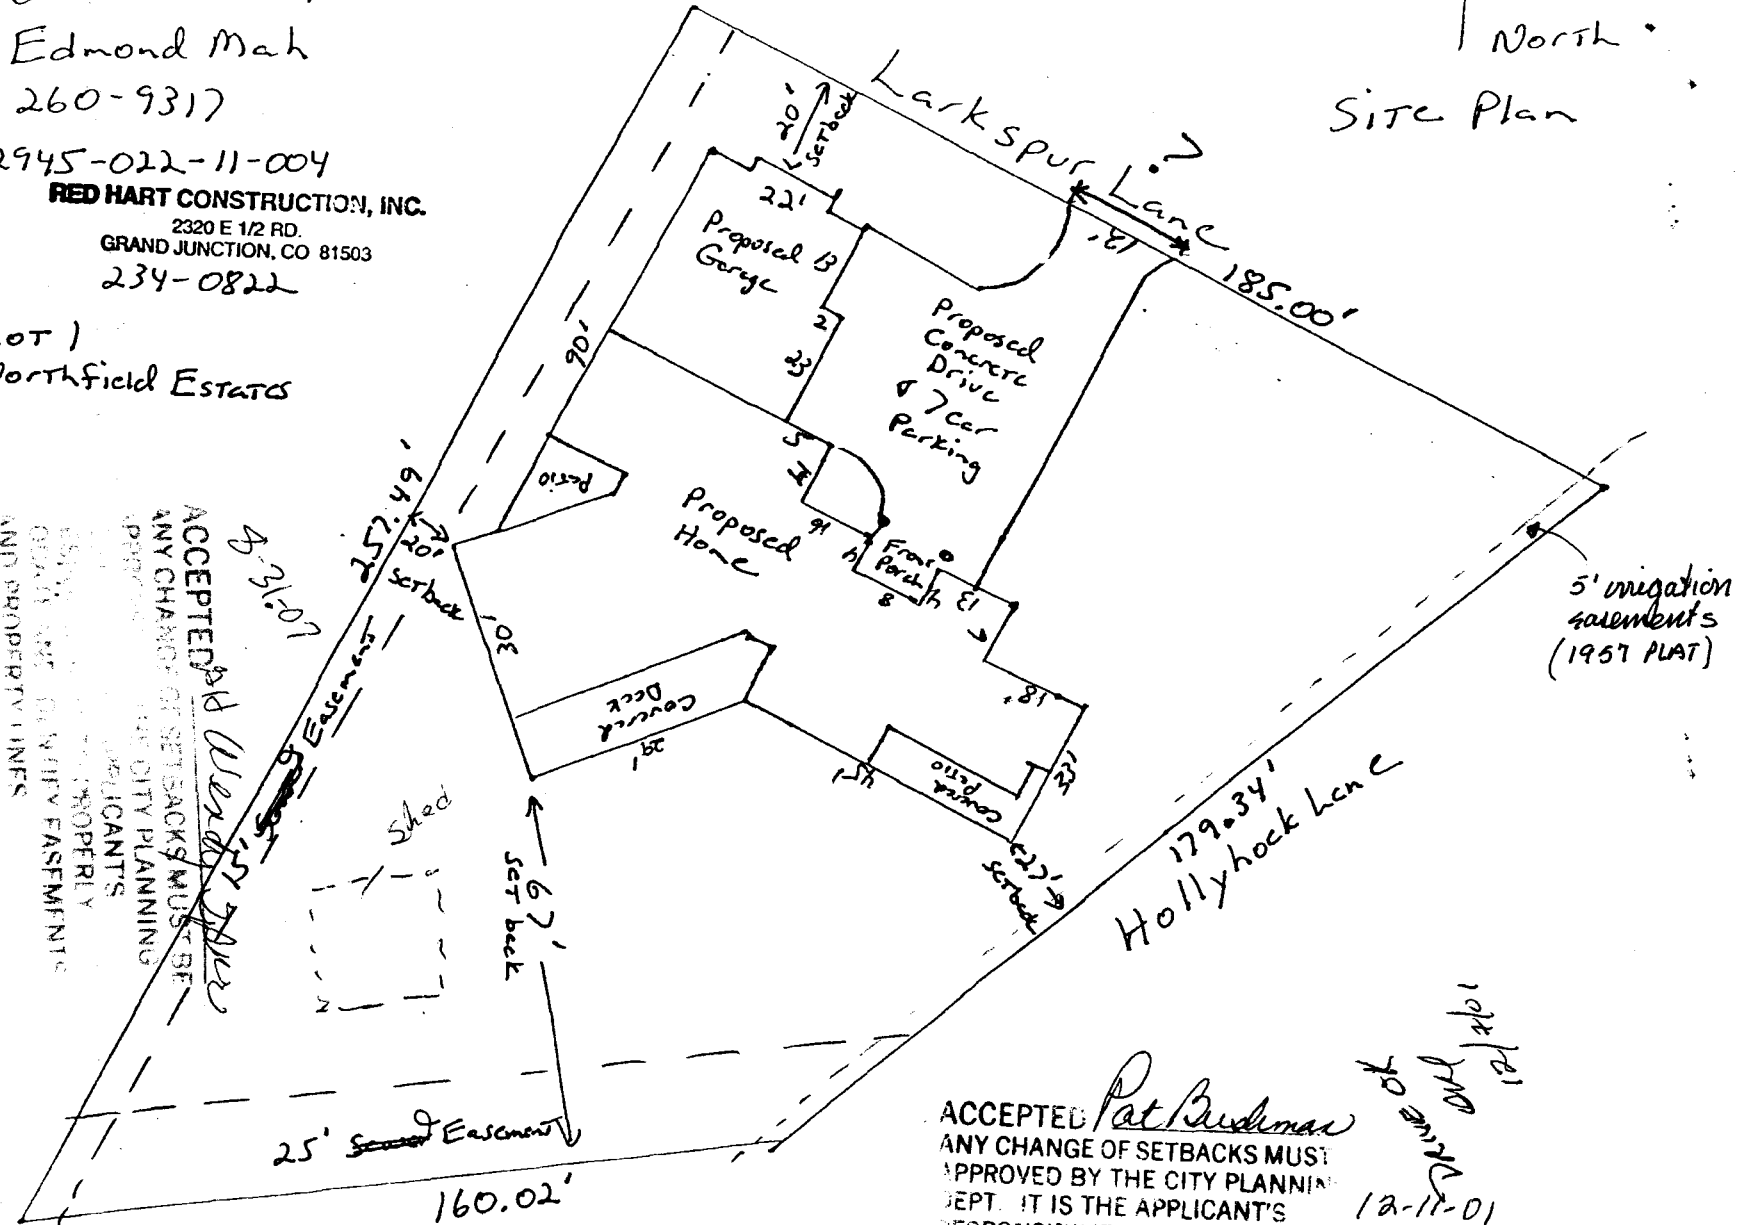 Edmond Mah
260-9317
2945-022-11-004
RED HART CONSTRUCTION, INC.
2320 E 1/2 RD.
GRAND JUNCTION, CO 81503
234-0822
LOT 1
Northfield Estates
North
Site Plan
Larkspur Lane
?
185.00'
20'
Setback
22'
Proposed
Garage
13
2
23
90'
Proposed
Concrete
Drive
& 7 car
Parking
5
14
16
4
Front
Porch
8
4
13
Patio
Proposed
Home
257.49'
20'
setback
30'
Covered
Deck
29'
18'
23'
Covered
Patio
45'
27'
setback
5' irrigation
easements
(1957 PLAT)
179.34'
Hollyhock Lane
15' Easement
Shed
67'
set back
25' Easement
160.02'
8-31-07
ACCEPTED
ANY CHANGE OF SETBACKS MUST BE
CITY PLANNING
APPLICANT'S
PROPERLY
IDENTIFY EASEMENTS
AND PROPERTY LINES
ACCEPTED Pat Bushman
ANY CHANGE OF SETBACKS MUST
APPROVED BY THE CITY PLANNIN
DEPT. IT IS THE APPLICANT'S
12-11-01
DRIVE OK
12/4/01